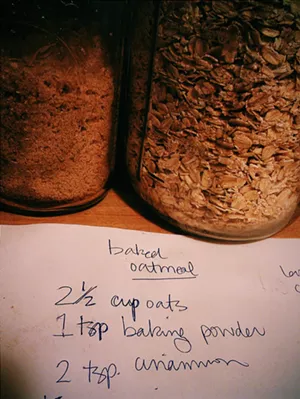 baked
oatmeal
2½ cup oats
1 tsp baking powder
2 tsp. cinnamon